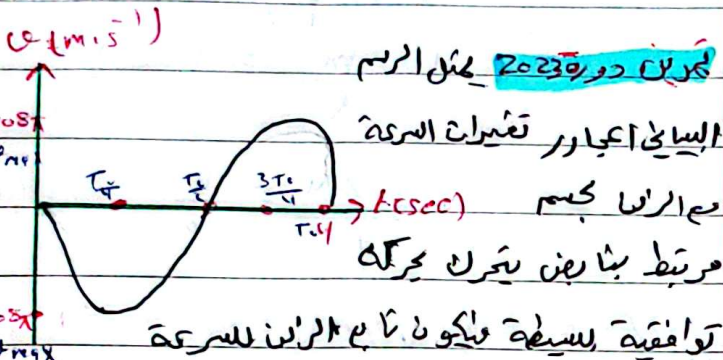 v (m.s⁻¹)
تمرين دورة 2023 يمثل الرسم
البياني المجاور تغيرات السرعة
مع الزمن لجسم
مرتبط بنابض يتحرك بحركة
توافقية بسيطة فيكون تابع الزمن للسرعة
T₀/4
T₀/2
3T₀/4
T₀
t(sec)